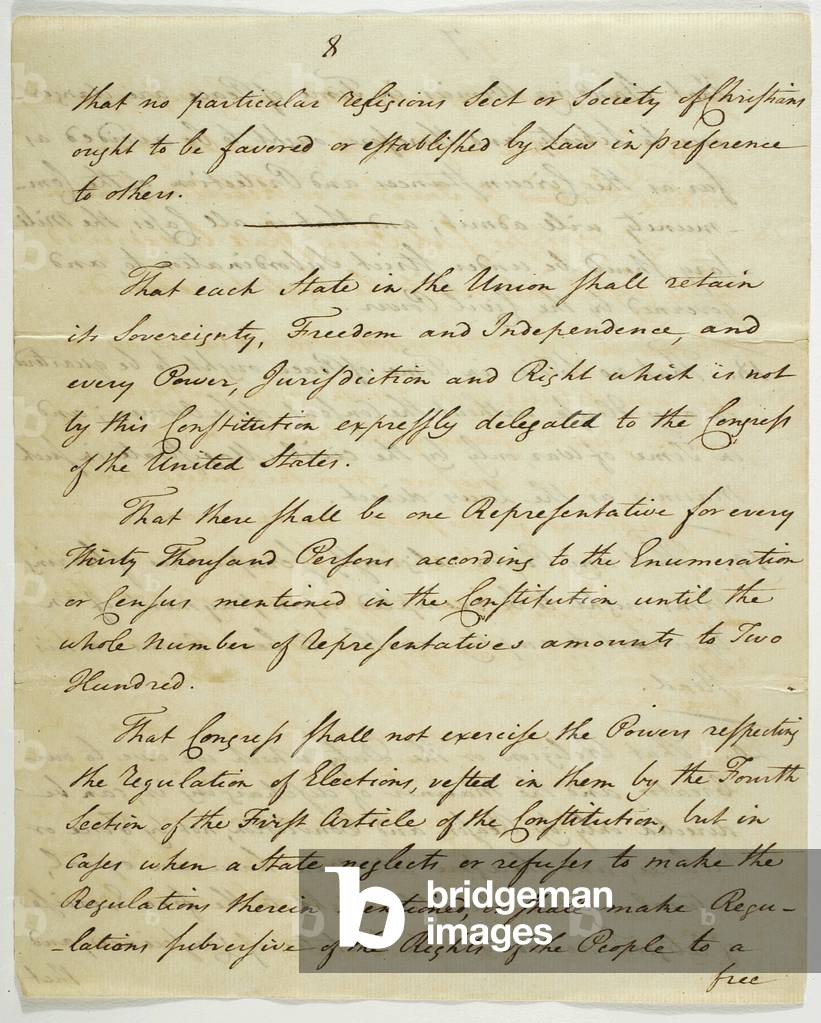 8
that no particular religious Sect or Society of Christians
ought to be favored or established by Law in preference
to others.
That each State in the Union shall retain
its Sovereignty, Freedom and Independence, and
every Power, Jurisdiction and Right which is not
by this Constitution expressly delegated to the Congress
of the United States.
That there shall be one Representative for every
thirty Thousand Persons according to the Enumeration
or Census mentioned in the Constitution until the
whole number of representatives amounts to Two
Hundred.
That Congress shall not exercise the Powers respecting
the regulation of Elections, vested in them by the Fourth
Section of the First Article of the Constitution, but in
Cases when a State neglects or refuses to make the
Regulations therein mentioned, or shall make Regu-
-lations subversive of the Rights of the People to a
free
bridgeman
images